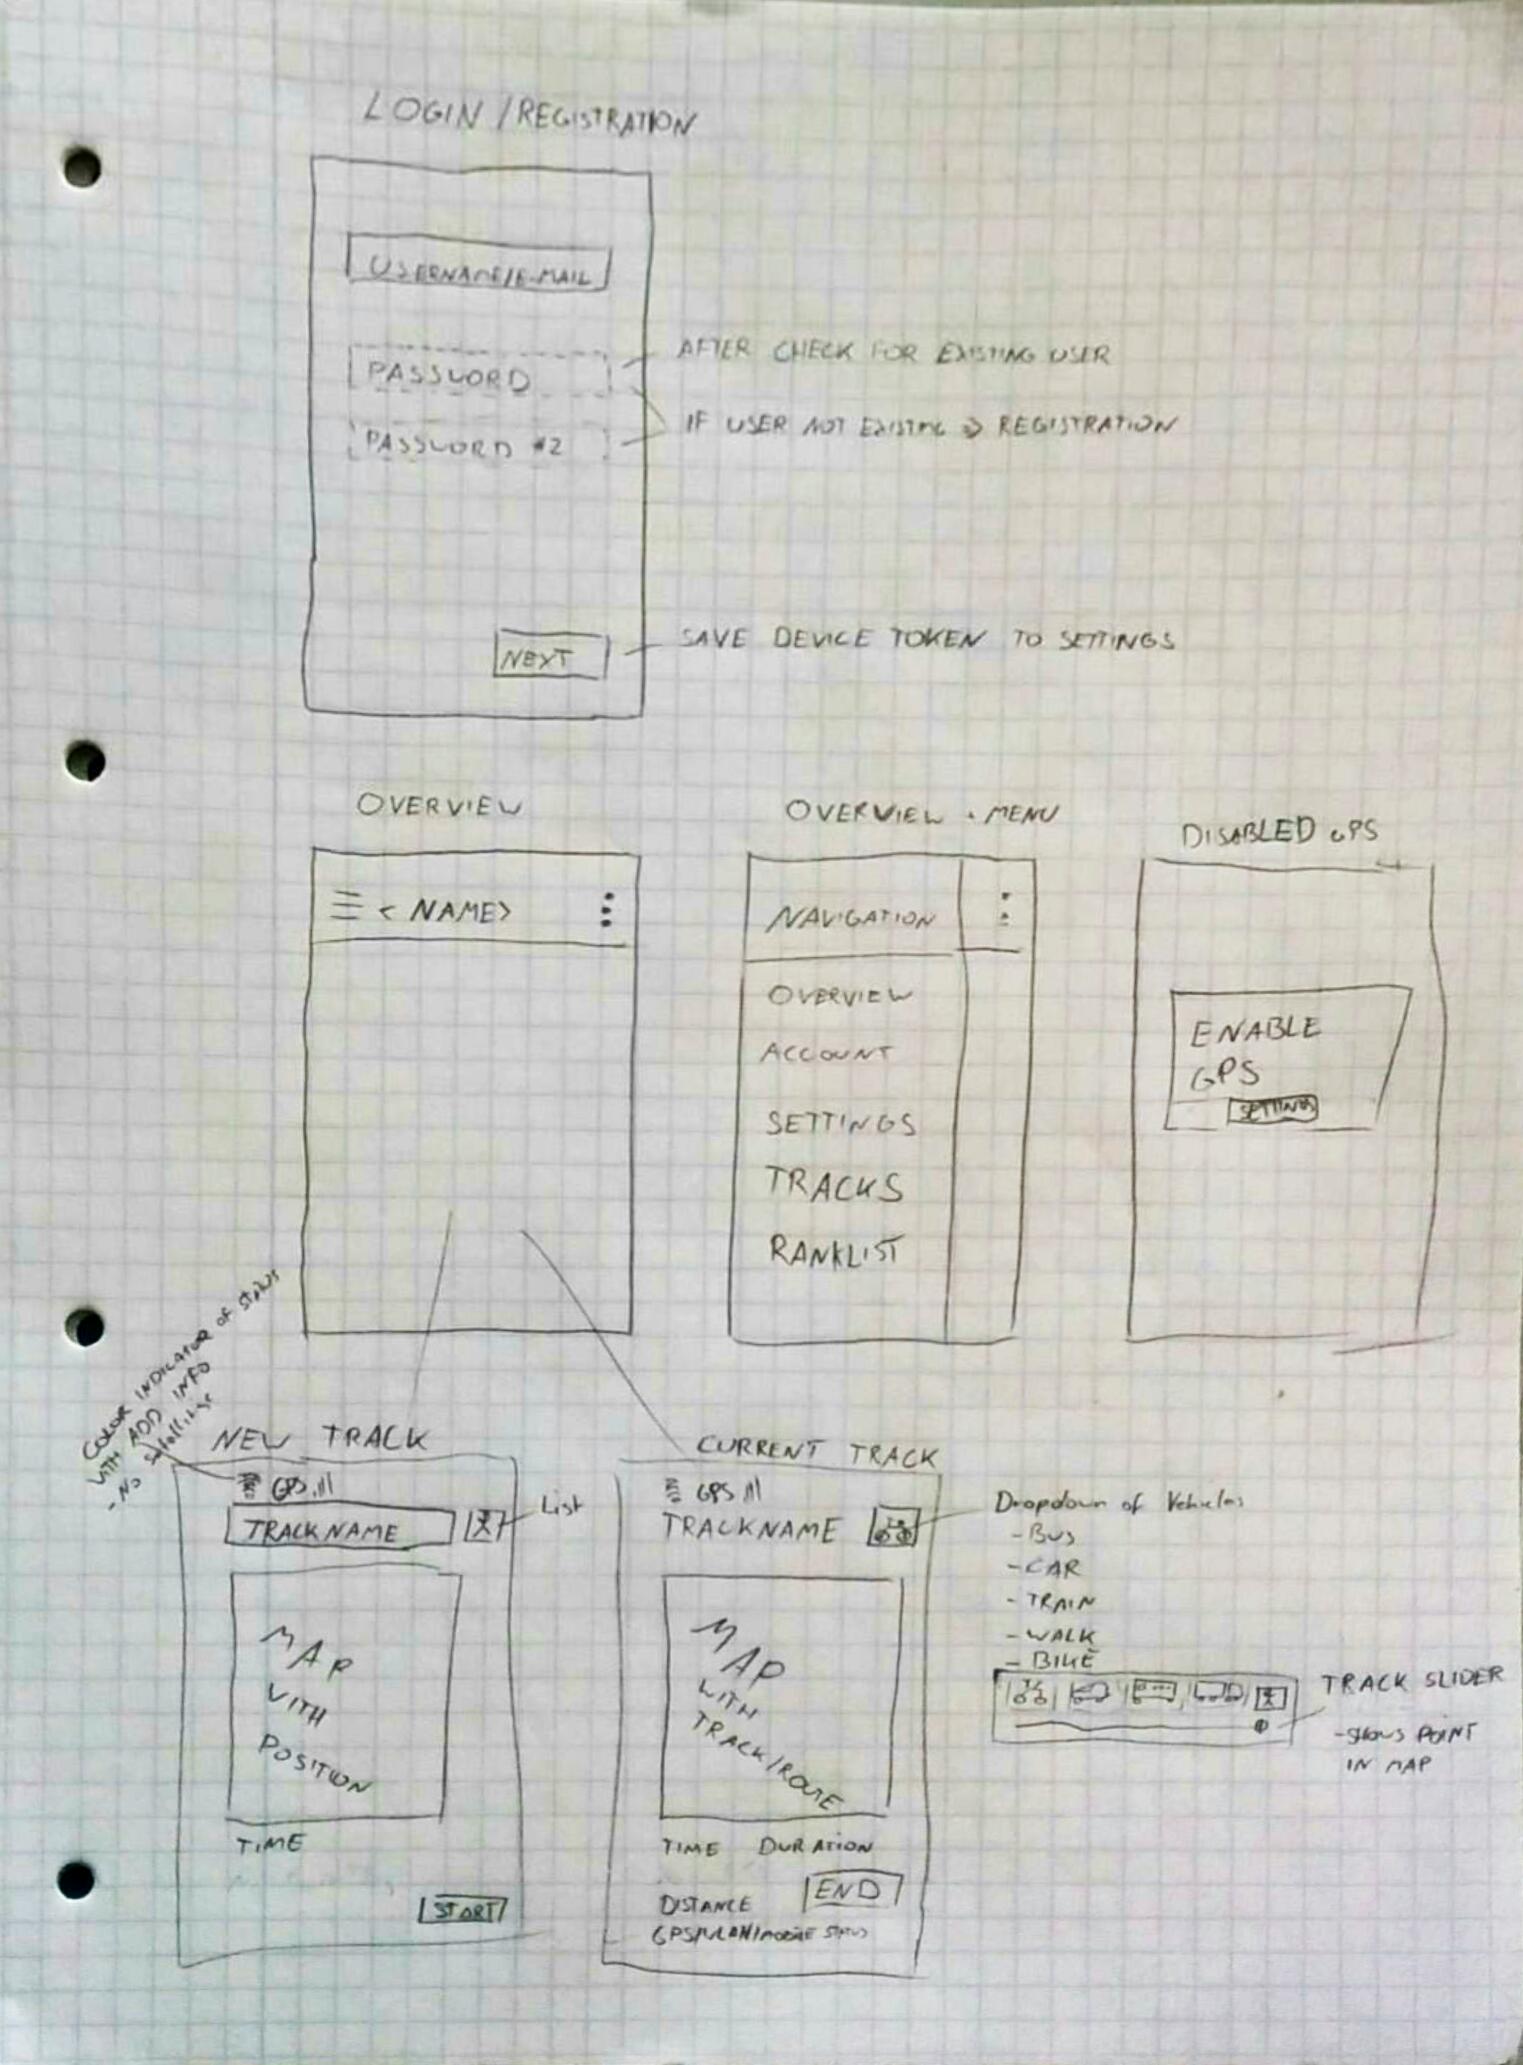 LOGIN / REGISTRATION
USERNAME/E-MAIL
PASSWORD
AFTER CHECK FOR EXISTING USER
PASSWORD #2
IF USER NOT EXISTING => REGISTRATION
NEXT
SAVE DEVICE TOKEN TO SETTINGS
OVERVIEW
< NAME>
OVERVIEW + MENU
NAVIGATION
OVERVIEW
ACCOUNT
SETTINGS
TRACKS
RANKLIST
DISABLED GPS
ENABLE
GPS
SETTINGS
COLOR INDICATOR OF STATUS
WITH ADD INFO
- No Satellites
NEW TRACK
GPS
TRACKNAME
List
MAP
WITH
POSITION
TIME
START
CURRENT TRACK
GPS
TRACKNAME
MAP
WITH
TRACK/ROUTE
TIME DURATION
DISTANCE
END
GPS/WLAN/MOBILE STATUS
Dropdown of Vehicles
- BUS
- CAR
- TRAIN
- WALK
- BIKE
TRACK SLIDER
- SHOWS POINT
IN MAP